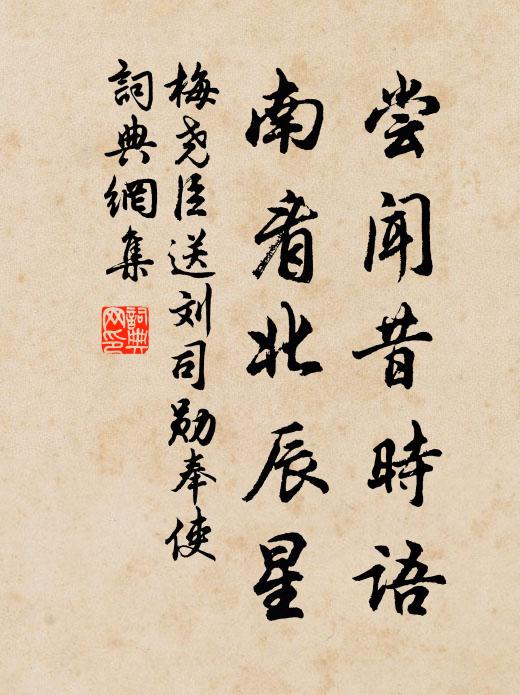 尝闻昔時语
南看北辰星
梅尧臣送刘司勋奉使
詞典網集
詞典网印